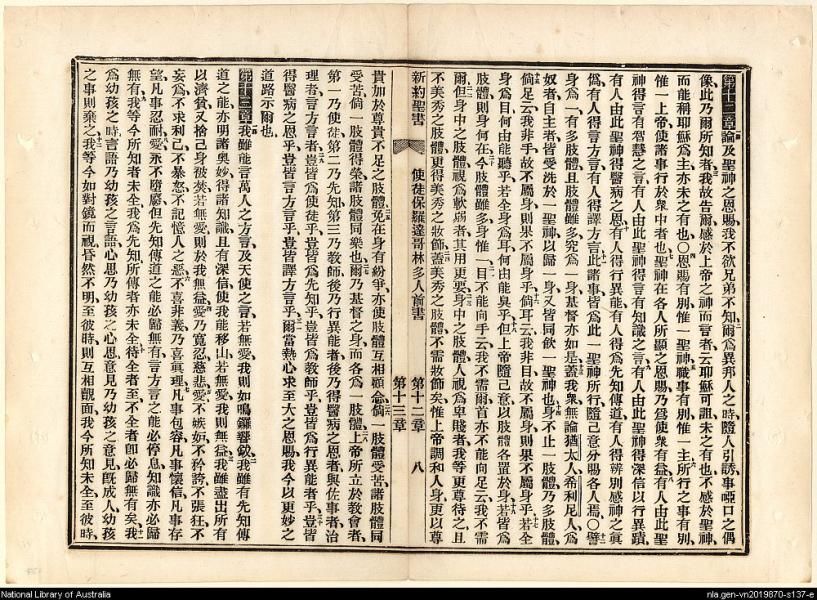 第十二章論及聖神之恩賜我不欲兄弟不知爾爲異邦人之時隨人引誘事啞口之偶
像此乃爾所知者我故告爾感於上帝之神而言者云耶穌可詛未之有也不感於聖神
而能稱耶穌爲主亦未之有也○恩賜有別惟一聖神職事有別惟一主所行之事有別
惟一上帝使諸事行於衆中者也聖神在各人所顯之恩賜乃爲使衆有益有人由此聖
神得言有智慧之言有人由此聖神得言有知識之言有人由此聖神得深信以行異蹟
有人由此聖神得醫病之恩有人得行異能有人得爲先知傳道有人得辨別感神之眞
僞有人得言方言有人得譯方言此諸事皆爲此一聖神所行隨己意分賜各人焉○譬
身爲一有多肢體且肢體雖多究爲一身基督亦如是蓋我衆無論猶太人希利尼人爲
奴者自主者皆受洗於一聖神以歸一身又皆同飲一聖神也身不止一肢體乃多肢體
倘足云我非手故不屬身則果不屬身乎倘耳云我非目故不屬身則果不屬身乎若全
身爲目何由能聽乎若全身爲耳何由能臭乎但上帝隨己意以肢體各置於身若皆爲一
肢體則身何在今肢體雖多身惟一目不能向手云我不需爾首亦不能向足云我不需
爾但身中之肢體視爲軟弱者其用更要身中之肢體人視爲卑賤者我等更尊待之且
不美秀之肢體更得美秀之妝飾蓋美秀之肢體不需妝飾矣惟上帝調和人身更以尊
新約聖書 使徒保羅達哥林多人前書 第十二章 八
第十三章
貴加於尊貴不足之肢體免在身有紛爭亦使肢體互相顧念倘一肢體受苦諸肢體同
受苦倘一肢體得榮諸肢體同樂也爾乃基督之身而各爲一肢體上帝所立於敎會者
第一乃使徒第二乃先知第三乃敎師後乃行異能者後乃得醫病之恩者與佐事者治
理者言方言者豈皆爲使徒乎豈皆爲先知乎豈皆爲敎師乎豈皆爲行異能者乎豈皆
得醫病之恩乎豈皆言方言乎豈皆譯方言乎爾當熱心求至大之恩賜我今以更妙之
道路示爾也
第十三章我雖能言萬人之方言及天使之言若無愛我則如鳴鑼響鈸我雖有先知傳
道之能亦明諸奧妙得諸知識且有深信使我能移山若無愛我則無益我雖盡出所有
以濟貧又捨己身被焚若無愛則於我無益愛乃寬忍慈悲愛不嫉妒不矜誇不張狂不
妄爲不求利己不暴怒不記憶人之惡不喜非義乃喜眞理凡事包容凡事懷信凡事存
望凡事忍耐愛永不墮廢但先知傳道之能必歸無有言方言之能必停息知識亦必歸
無有我等今所知者未全我爲先知所傳者亦未全待全者至不全者卽必歸無有矣我
爲幼孩之時言語乃幼孩之言語心思乃幼孩之心思意見乃幼孩之意見旣成人幼孩
之事則棄之我等今如對鏡而視昏然不明至彼時則互相覿面我今所知未全至彼時
National Library of Australia
nla.gen-vn2019870-s137-e